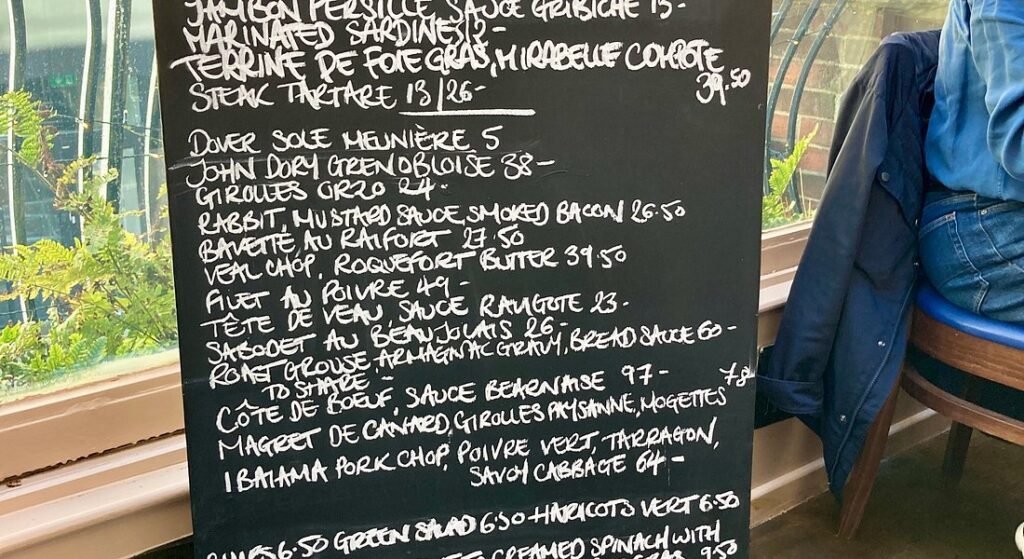 JAMBON PERSILLE, SAUCE GRIBICHE 13-
MARINATED SARDINES 13-
TERRINE DE FOIE GRAS, MIRABELLE COMPOTE
39.50
STEAK TARTARE 13/26-
DOVER SOLE MEUNIÈRE 5
JOHN DORY GRENOBLOISE 38-
GIROLLES ORZO 24-
RABBIT, MUSTARD SAUCE, SMOKED BACON 26.50
BAVETTE AU RAIFORT 27.50
VEAL CHOP, ROQUEFORT BUTTER 39.50
FILET AU POIVRE 49-
TÊTE DE VEAU, SAUCE RAVIGOTE 23-
SABODET AU BEAUJOLAIS 26-
ROAST GROUSE, ARMAGNAC GRAVY, BREAD SAUCE 60-
TO SHARE -
CÔTE DE BOEUF, SAUCE BEARNAISE 97-
78-
MAGRET DE CANARD, GIROLLES PAYSANNE, MOGETTES
IBAIAMA PORK CHOP, POIVRE VERT, TARRAGON,
SAVOY CABBAGE 64-
6.50 GREEN SALAD 6.50 HARICOTS VERT 6.50
CREAMED SPINACH WITH
950